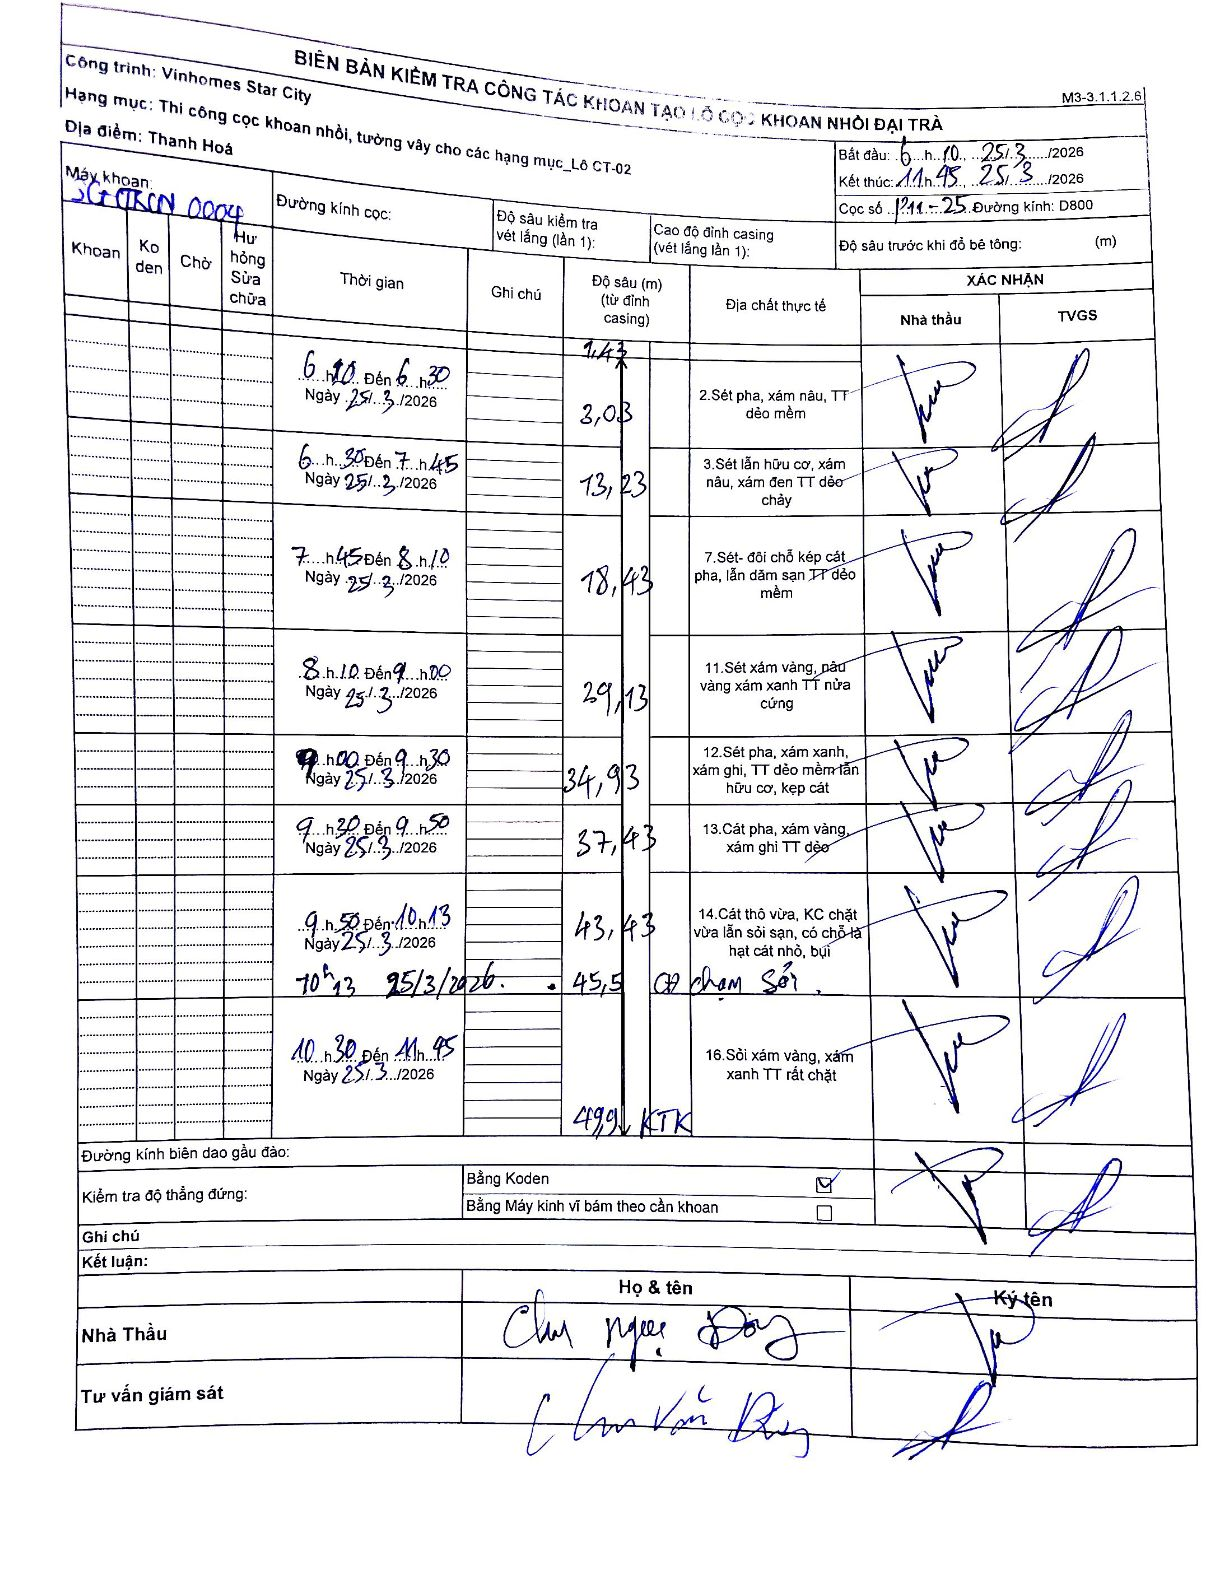 BIÊN BẢN KIỂM TRA CÔNG TÁC KHOAN TẠO LỖ CỌC KHOAN NHỒI ĐẠI TRÀ
M3-3.1.1.2.6
Công trình: Vinhomes Star City
Hạng mục: Thi công cọc khoan nhồi, tường vây cho các hạng mục_Lô CT-02
Địa điểm: Thanh Hoá
Bắt đầu: 6 h 10, 25/3/2026
Kết thúc: 11h 45, 25/3/2026
Cọc số P11-25 Đường kính: D800
Máy khoan:
0004
Đường kính cọc:
Độ sâu kiểm tra vét lắng (lần 1):
Cao độ đỉnh casing (vét lắng lần 1):
Độ sâu trước khi đổ bê tông: (m)
Khoan
Ko den
Chờ
Hư hỏng Sửa chữa
Thời gian
Ghi chú
Độ sâu (m) (từ đỉnh casing)
Địa chất thực tế
XÁC NHẬN
Nhà thầu
TVGS
1,43
6 h 10 Đến 6 h 30
Ngày 25/3/2026
3,03
2.Sét pha, xám nâu, TT dẻo mềm
6 h 30 Đến 7 h 45
Ngày 25/3/2026
13,23
3.Sét lẫn hữu cơ, xám nâu, xám đen TT dẻo chảy
7 h 45 Đến 8 h 10
Ngày 25/3/2026
18,43
7.Sét- đôi chỗ kép cát pha, lẫn dăm sạn TT dẻo mềm
8 h 10 Đến 9 h 00
Ngày 25/3/2026
29,13
11.Sét xám vàng, nâu vàng xám xanh TT nửa cứng
9 h 00 Đến 9 h 30
Ngày 25/3/2026
34,93
12.Sét pha, xám xanh, xám ghi, TT dẻo mềm lẫn hữu cơ, kẹp cát
9 h 30 Đến 9 h 50
Ngày 25/3/2026
37,43
13.Cát pha, xám vàng, xám ghi TT dẻo
9 h 50 Đến 10 h 13
Ngày 25/3/2026
43,43
14.Cát thô vừa, KC chặt vừa lẫn sỏi sạn, có chỗ là hạt cát nhỏ, bụi
10h13 25/3/2026. 45,5 CĐ chạm sỏi.
10 h 30 Đến 11 h 45
Ngày 25/3/2026
16.Sỏi xám vàng, xám xanh TT rất chặt
49,9 KTK
Đường kính biên dao gầu đào:
Kiểm tra độ thẳng đứng:
Bằng Koden
Bằng Máy kinh vĩ bám theo cần khoan
Ghi chú
Kết luận:
Họ & tên
Ký tên
Nhà Thầu
Chu Ngọc
Tư vấn giám sát
Văn